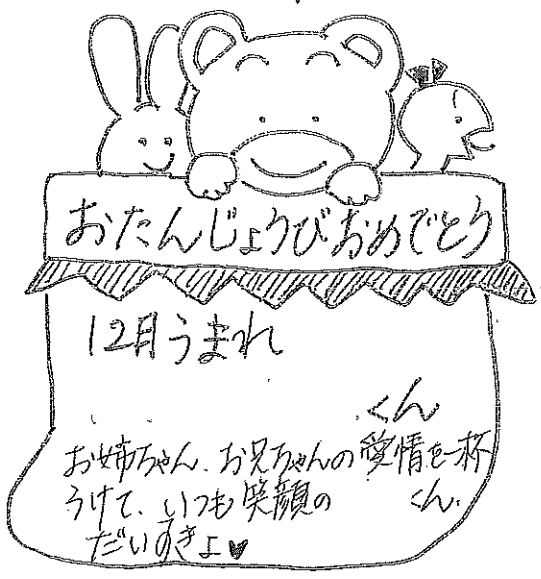 おたんじょうびおめでとう
12月うまれ
くん
お姉ちゃん、お兄ちゃんの愛情を一杯
うけて、いつも笑顔の くん。
だいすきよ♥